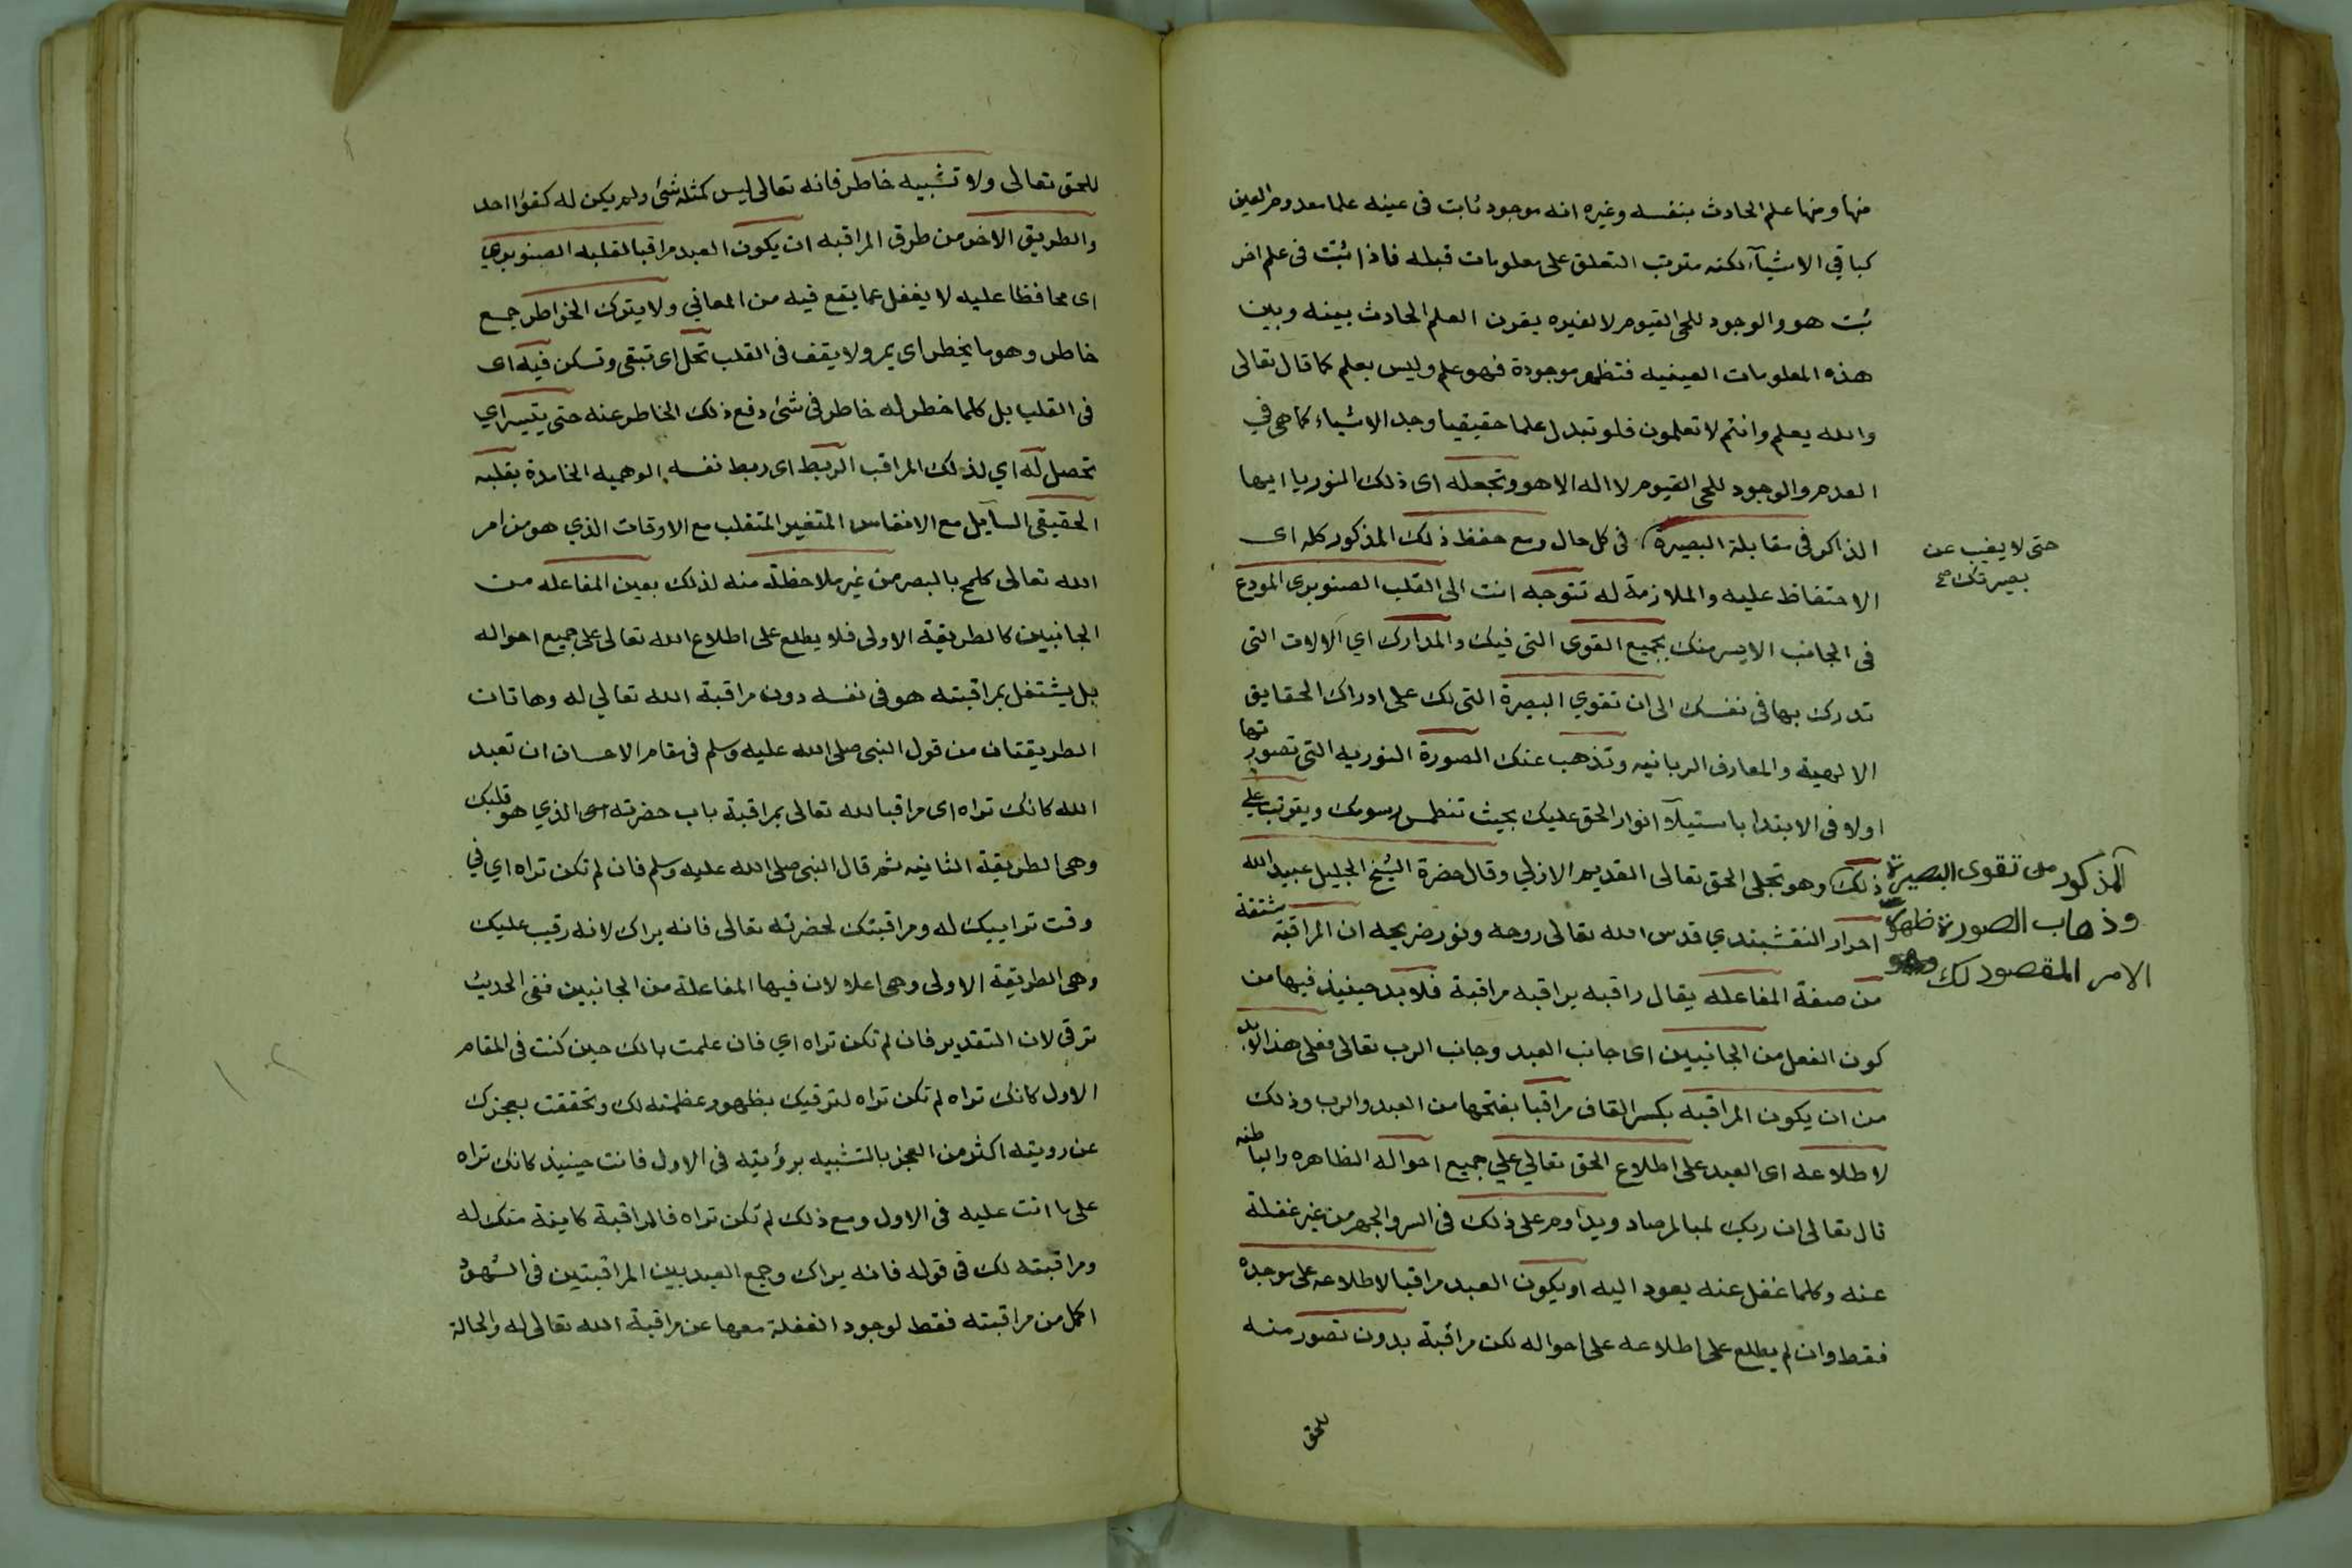 منها ومنها علم الحادث بنفسه وغيره انه موجود ثابت في عينه علما معدوم العين
كباقي الاشيآء لكنه مترتب التعلق على معلومات قبله فاذا ثبت في علم اخر
ثبت هو والوجود للحي القيوم لا لغيره يقرن العلم الحادث بينه وبين
هذه المعلومات العينيه فتظهر موجودة فهو علم وليس بعلم كما قال تعالى
والله يعلم وانتم لا تعلمون فلو تبدل علما حقيقيا وجد الاشياء كما هي في
العدم والوجود للحي القيوم لا اله الا هو وتجعله اى ذلك النور يا ايها
الذاكر في مقابلة البصيرة في كل حال ومع حفظ ذلك المذكور كله اى
حتى لا يغيب عن
بصيرتك صح
الاحتفاظ عليه والملازمة له تتوجه انت الى القلب الصنوبرى المودع
في الجانب الايسر منك بجميع القوى التى فيك والمدارك اي الالات التى
تدرك بها في نفسك الى ان تقوي البصيرة التى لك على ادراك الحقايق
الالهية والمعارف الربانيه وتذهب عنك الصورة النوريه التى تصورتها
اولا في الابتدا باستيلآ انوار الحق عليك بحيث تنطمس رسومك ويترتب على
ذلك وهو تجلى الحق تعالى القديم الازلي وقال حضرة الشيخ الجليل عبيد الله
المذكور من تقوى البصيرة
وذهاب الصورة ظهور
الامر المقصود لك وهو
احرار النقشبندي قدس الله تعالى روحه ونور ضريحه ان المراقبة مشتقة
من صفة المفاعله يقال راقبه يراقبه مراقبة فلا بد حينيذ فيها من
كون الفعل من الجانبين اى جانب العبد وجانب الرب تعالى فعلى هذا لابد
من ان يكون المراقبه بكسر القاف مراقبا بفتحها من العبد والرب وذلك
لاطلاعه اى العبد على اطلاع الحق تعالي علي جميع احواله الظاهره والباطنه
قال تعالى ان ربك لبا لمرصاد ويداوم على ذلك في السر والجهر من غير غفلة
عنه وكلما غفل عنه يعود اليه او يكون العبد مراقبا لاطلاعه على موجده
فقط وان لم يطلع على اطلاعه على احواله لكن مراقبة بدون تصور منه
للحق
للحق تعالى ولا تشبيه خاطر فانه تعالى ليس كمثله شئ ولم يكن له كفؤا احد
والطريق الاخر من طرق المراقبه ان يكون العبد مراقبا لقلبه الصنوبري
اى محافظا عليه لا يغفل عما يقع فيه من المعاني ولا يترك الخواطر جمع
خاطر وهو ما يخطر اى يمر ولا يقف في القلب تحل اى تبقى وتسكن فيه اى
في القلب بل كلما خطر له خاطر في شئ دفع ذلك الخاطر عنه حتى يتيسر اي
تحصل له اي لذلك المراقب الربط اى ربط نفسه الوهميه الخامدة بقلبه
الحقيقى السآيل مع الانفاس المتغير المتقلب مع الاوقات الذي هو من امر
الله تعالى كلمح بالبصر من غير ملاحظة منه لذلك بعين المفاعله من
الجانبين كالطريقة الاولى فلا يطلع على اطلاع الله تعالى على جميع احواله
بل يشتغل بمراقبته هو في نفسه دون مراقبة الله تعالي له وهاتان
الطريقتان من قول النبى صلى الله عليه وسلم في مقام الاحسان ان تعبد
الله كانك تراه اى مراقبا لله تعالى بمراقبة باب حضرته الذي هو قلبك
وهى الطريقة الثانيه ثم قال النبى صلى الله عليه وسلم فان لم تكن تراه اي في
وقت تراييك له ومراقبتك لحضرته تعالى فانه يراك لانه رقيب عليك
وهى الطريقة الاولى وهى اعلا لان فيها المفاعلة من الجانبين ففى الحديث
ترقى لان التقدير فان لم تكن تراه اي فان علمت بانك حين كنت في المقام
الاول كانك تراه لم تكن تراه لترقيك بظهور عظمته لك وتحققت بعجزك
عن رويته اكثر من العجز بالتشبيه برؤيته في الاول فانت حينيذ كانك تراه
على ما انت عليه في الاول ومع ذلك لم تكن تراه فالمراقبة كاينة منك له
ومراقبته لك في قوله فانه يراك وجمع العبد بين المراقبتين في الشهود
اكمل من مراقبته فقط لوجود الغفلة معها عن مراقبة الله تعالى له والحالة